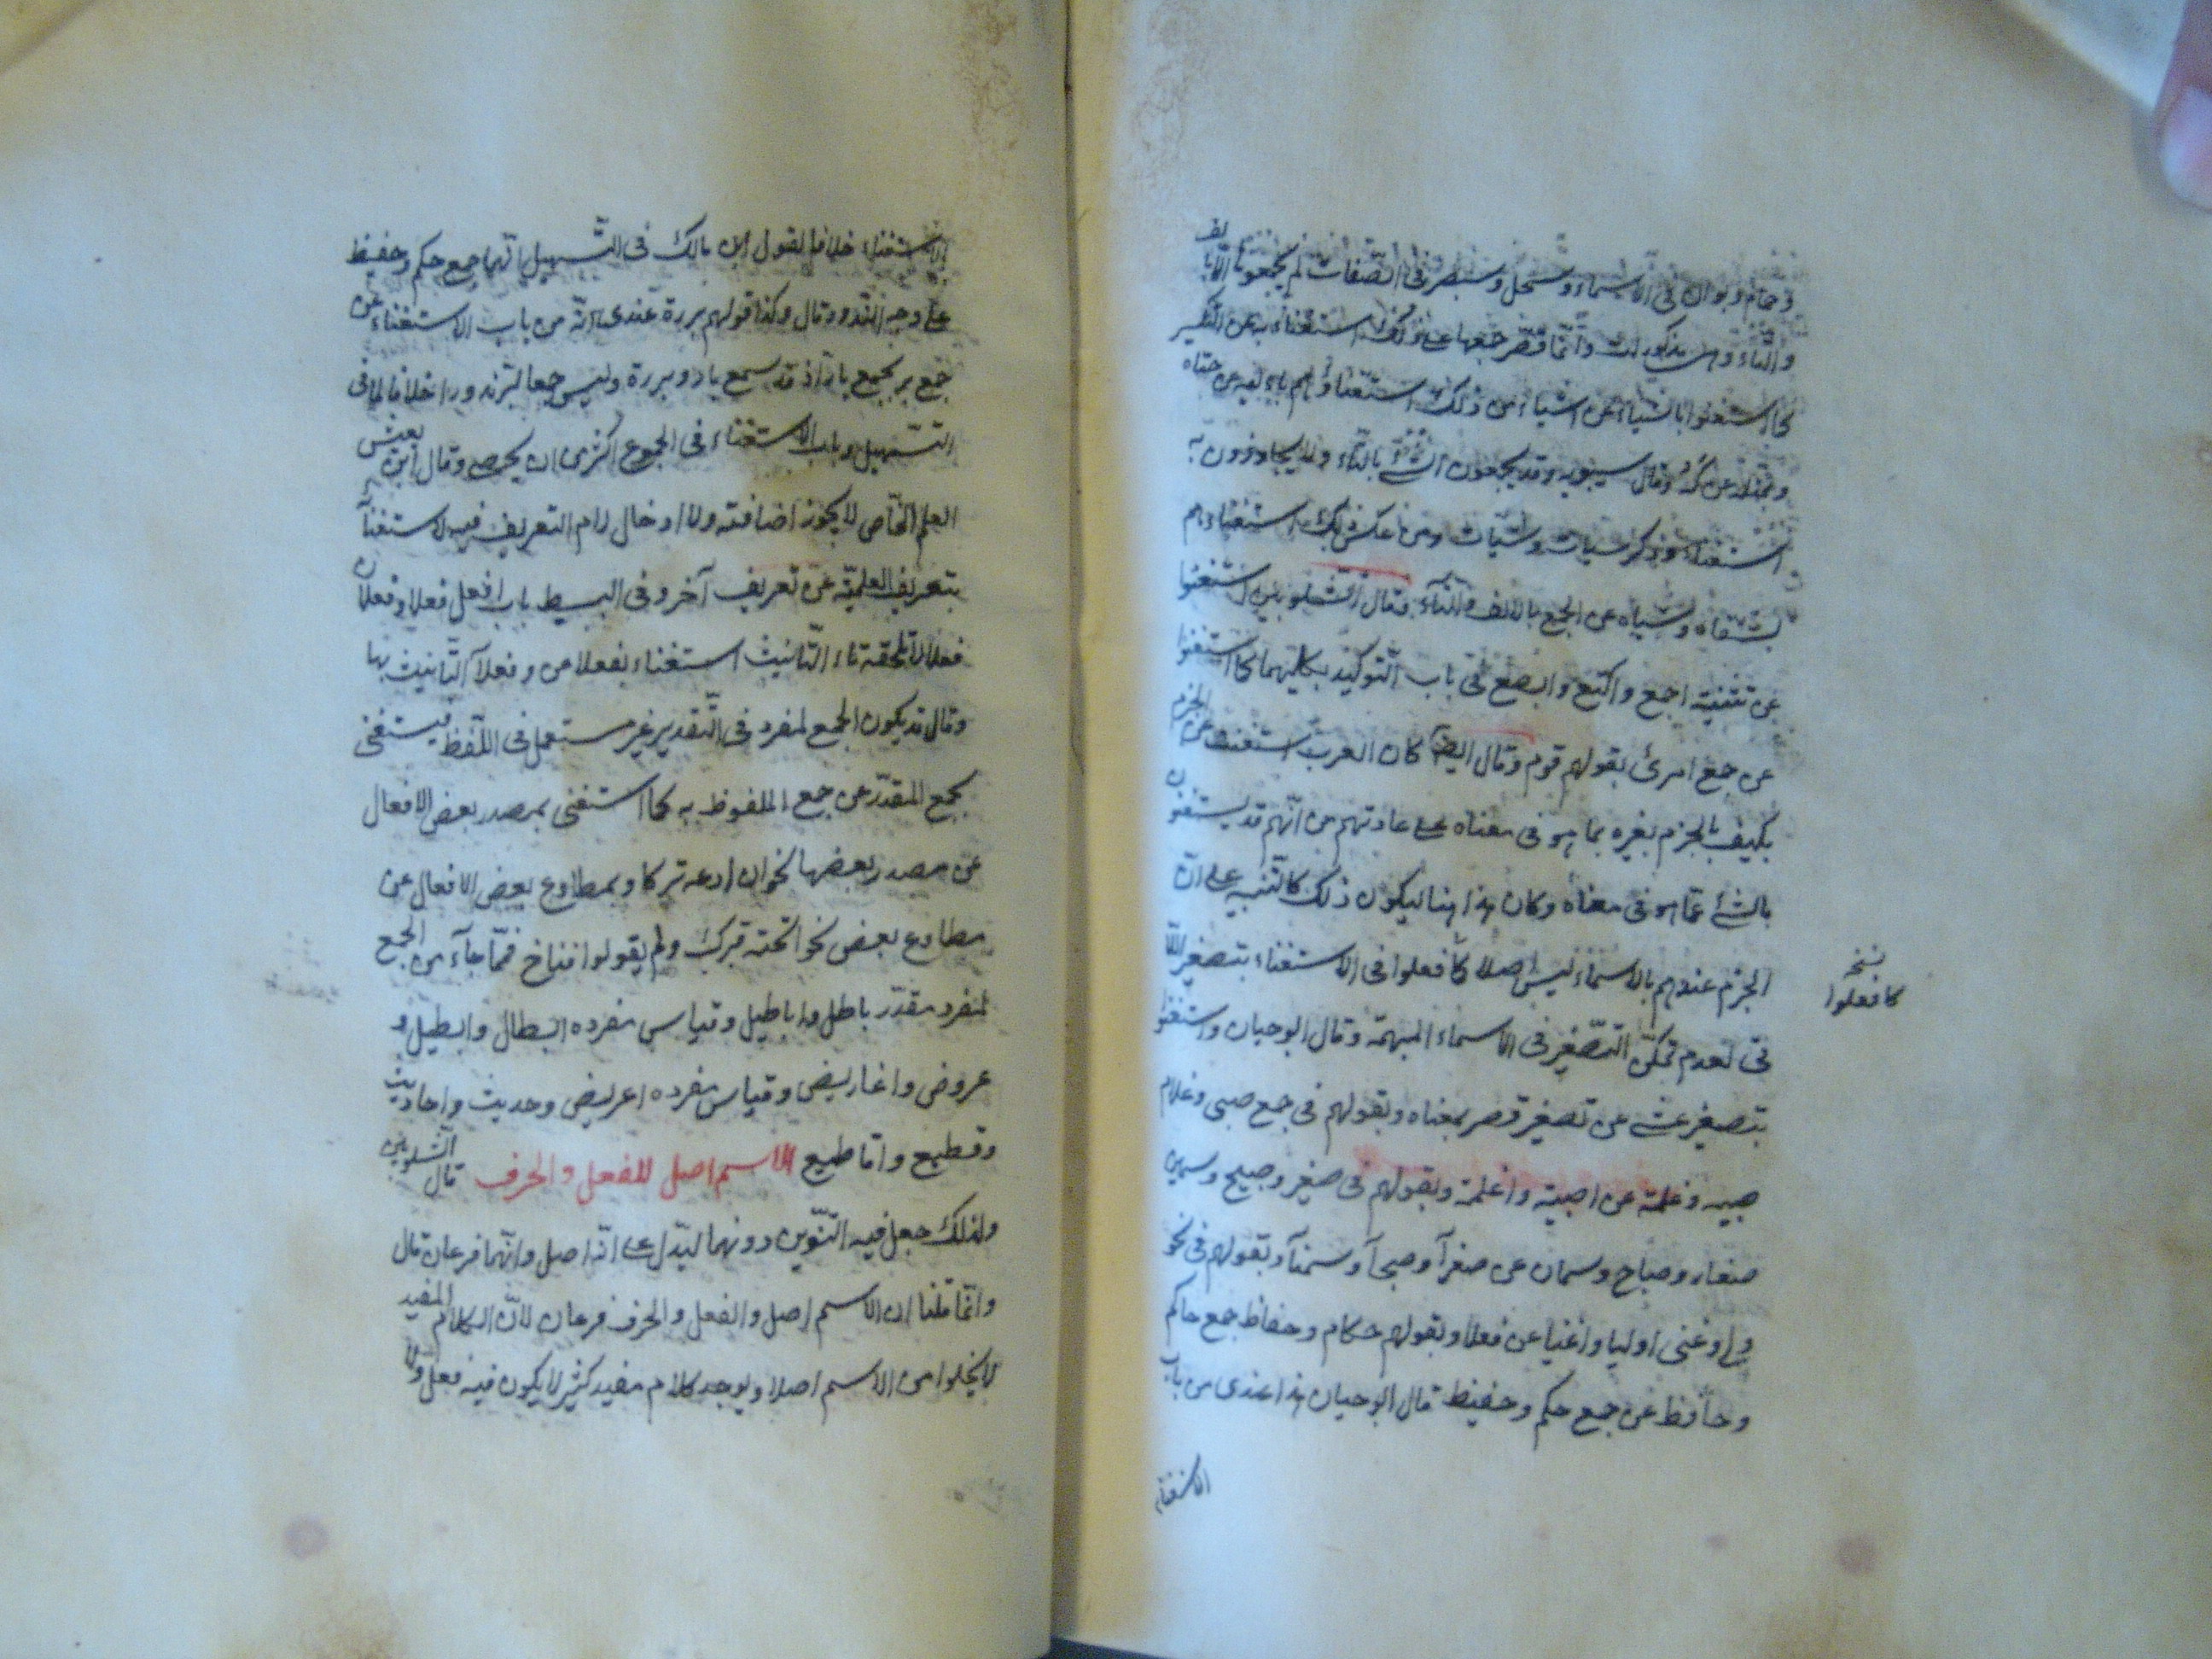 وحمام وبوان في الاسماء وسبحل وسبطر في الصفات لم يجمعوها الا بالالف
والتاء وهي مذكورات وانما قصر جمعها على ذلك استغناء به عن التكسير
كما استغنوا باشياء عن اشياء من ذلك استغناؤهم
وقال سيبويه وقد يجمعون الشئ بالتاء ولا يجاوزون به
استغناء وذكر سيات وشيات ومن عكس ذلك استغناءهم
بشفاه وشياه عن الجمع بالالف والتاء وقال الشلوبين استغنوا
عن تثنية اجمع واكتع وابصع في باب التوكيد بكليهما كما استغنوا
عن جمع امرئ بقولهم قوم وقال ايضا كان العرب استغنت عن الجزم
بكيف بالجزم بغيره بما هو في معناه على عادتهم من انهم قد يستغنون
بالشئ عما هو في معناه وكان هذا هنا ليكون ذلك كالتنبيه على ان
الجزم عندهم بالاسماء ليس اصلا كما فعلوا في الاستغناء بتصغير اللا
تي لعدم تمكن التصغير في الاسماء المبهمة وقال ابو حيان واستغنوا
بتصغير عشى عن تصغير قصر بمعناه وبقولهم في جمع صبي وغلام
صبية وغلمة عن اصبية واغلمة وبقولهم في صغير وصبيح وسمين
صغار وصباح وسمان عن صغرآ وصبحآ وسمنآ وبقولهم في نحو
ولي وغنى اوليا واغنيا عن فعلا وبقولهم حكام وحفاظ جمع حاكم
وحافظ عن جمع حكم وحفيظ قال ابو حيان هذا عندى من باب
الاستغناء
نسخه
كما فعلوا
الاستغناء خلافا لقول ابن مالك في التسهيل انهما جمع حكم وحفيظ
على وجه الندور قال وكذا قولهم بررة عندى انه من باب الاستغناء عن
جمع بر بجمع بار اذ قد سمع بار وبررة وليس جمعا لبر ندورا خلافا لما في
التسهيل وباب الاستغناء في الجموع اكثر من ان يحصى وقال ابن يعيش
العلم الخاص لا يجوز اضافته ولا ادخال لام التعريف فيه لاستغنآ
بتعريف العلمية عن تعريف آخر وفي البسيط باب افعل فعلا وفعلان
فعلا لا تلحقه تاء التانيث استغناء بفعلا من وفعلآ التانيث بها
وقال قد يكون الجمع لمفرد في التقدير غير مستعمل في اللفظ فيستغنى
بجمع المقدر عن جمع الملفوظ به كما استغنى بمصدر بعض الافعال
عن مصدر بعضها نحو ان ادعه تركا وبمطاوع بعض الافعال عن
مطاوع بعض نحو انخته فبرك ولم يقولوا فناخ فمما جآء من الجمع
لمفرد مقدر باطل واباطيل وقياس مفرده ابطال وابطيل و
عروض واعاريض وقياس مفرده اعريض وحديث واحاديث
وقطيع واقاطيع الاسم اصل للفعل والحرف قال الشلوبين
ولذلك جعل فيه التنوين دونهما ليدل على انه اصل وانهما فرعان قال
وانما قلنا ان الاسم اصل والفعل والحرف فرعان لان الكلام المفيد
لا يخلوا من الاسم اصلا ويوجد كلام مفيد كثير لا يكون فيه فعل ولا